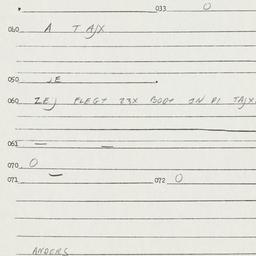 033 0
040 A TAJX
050 JE
060 ZEJ FLEGT 23X BODY IN PI TAJX
061 — —
070 0
071 — 072 0
ANDERS